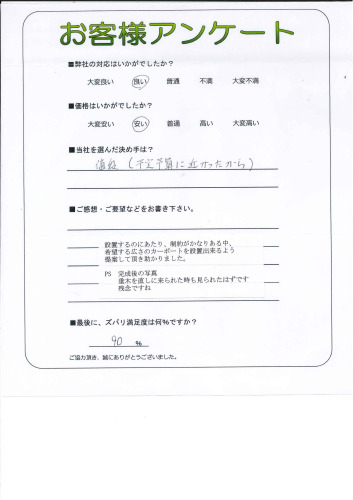 お客様アンケート
■弊社の対応はいかがでしたか？
大変良い 良い 普通 不満 大変不満
■価格はいかがでしたか？
大変安い 安い 普通 高い 大変高い
■当社を選んだ決め手は？
価格（予定予算に近かったから）
■ご感想・ご要望などをお書き下さい。
設置するのにあたり、制約がかなりある中、
希望する広さのカーポートを設置出来るよう
提案して頂き助かりました。
PS 完成後の写真
垂木を直しに来られた時も見られたはずです
残念ですね
■最後に、ズバリ満足度は何％ですか？
90 ％
ご協力頂き、誠にありがとうございました。